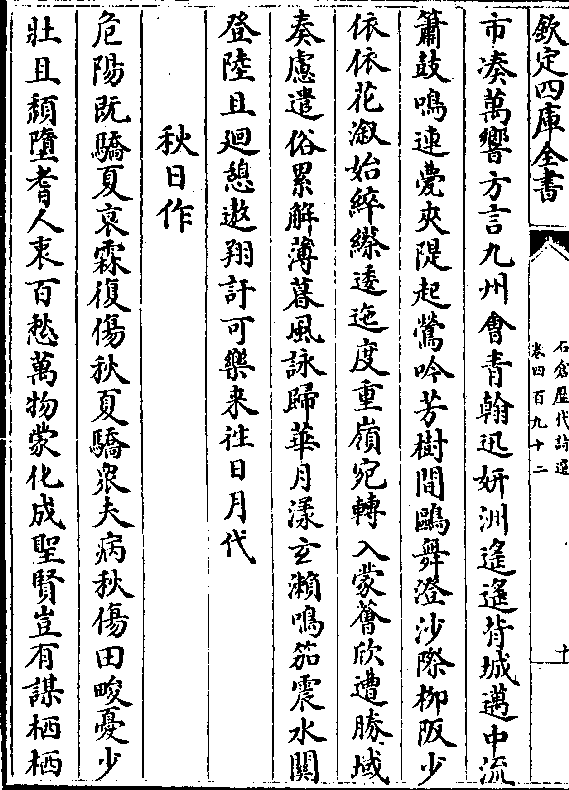 欽定四庫全書
石倉歷代詩選
卷四百九十二
十
市湊萬響方言九州會青翰迅妍洲遙遙背城邁中流
簫鼓鳴連甍夾隄起鶯吟芳樹間鷗舞澄沙際柳阪少
依依花漵始綷縩逶迤度重嶺宛轉入蒙薈欣遭勝域
奏慮遣俗累解薄暮風詠歸華月漾玄瀨鳴笳震水關
登陸且迴憩遨翔討可樂來往日月代
秋日作
危陽旣驕夏哀霖復傷秋夏驕衆夫病秋傷田畯憂少
壯且頹墮耆人衷百愁萬物蒙化成聖賢豈有謀栖栖